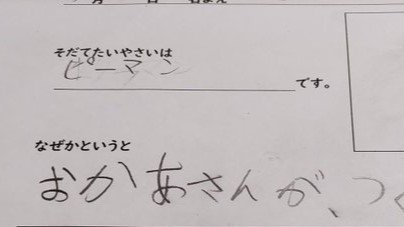 月 日 名まえ
そだてたいやさいは
ピーマン
です。
なぜかというと
おかあさんが、つ